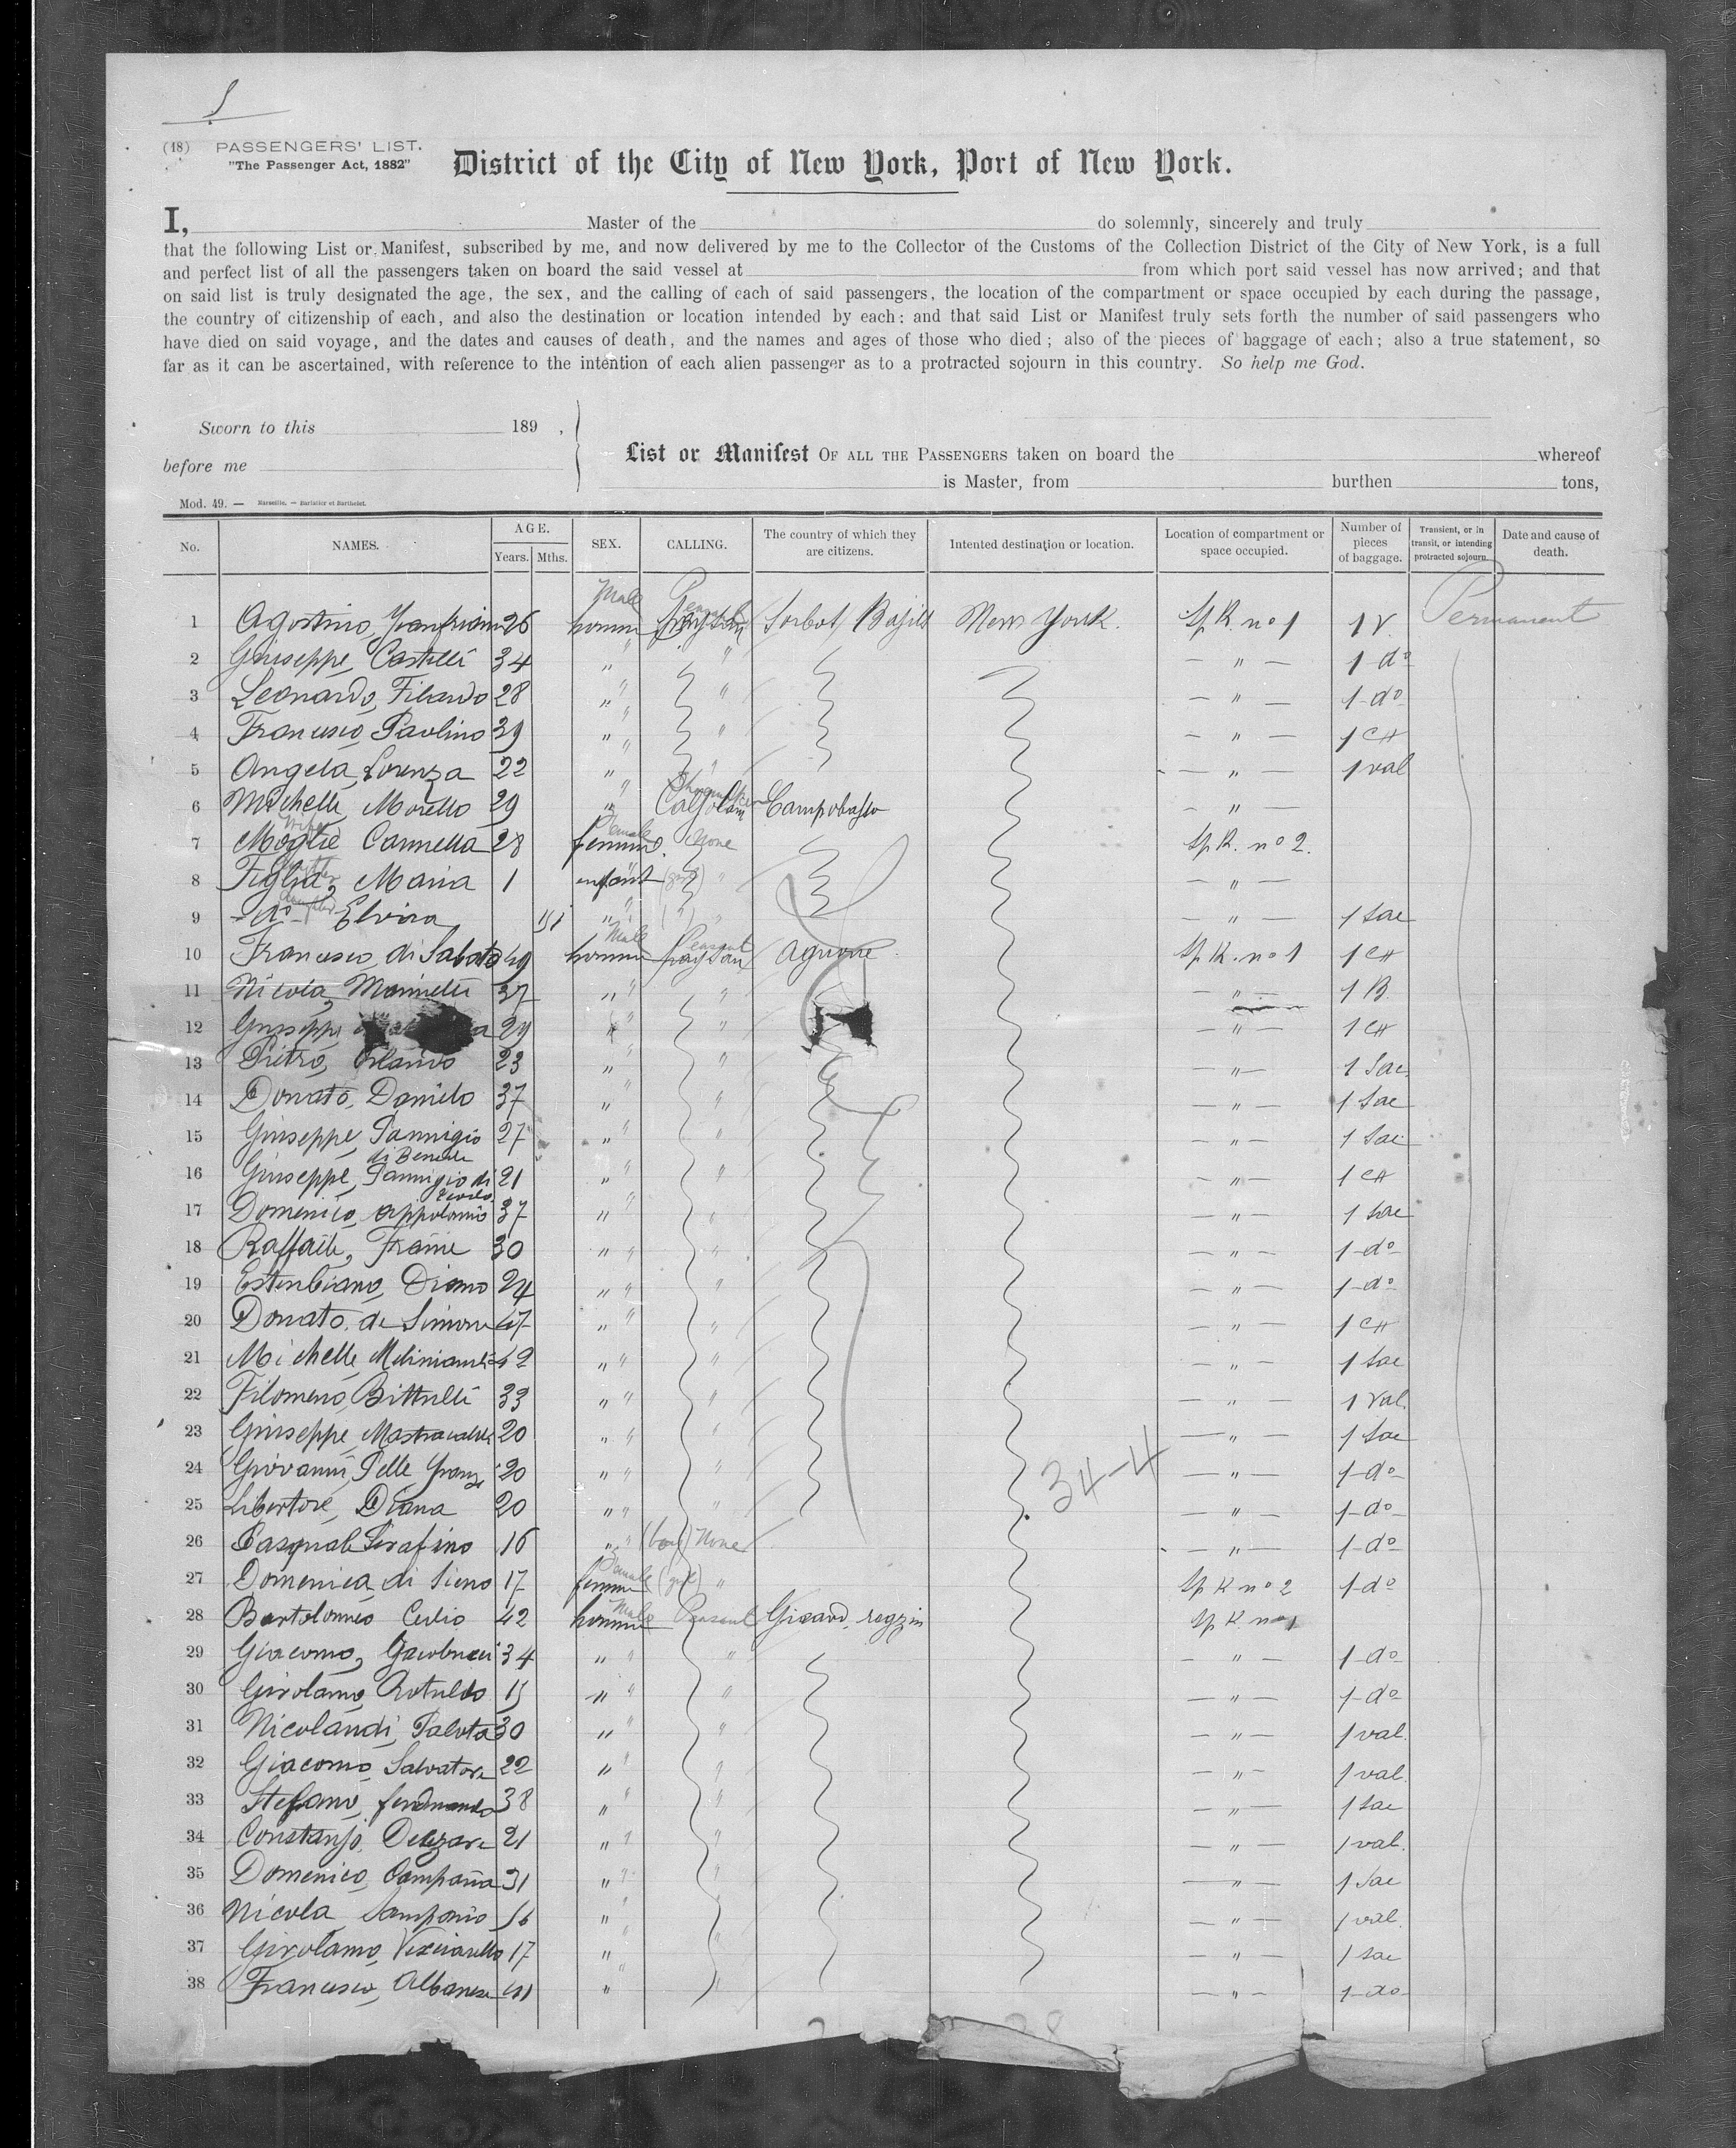 (18) PASSENGERS' LIST.
"The Passenger Act, 1882"
District of the City of New York, Port of New York.
I, Master of the do solemnly, sincerely and truly
that the following List or Manifest, subscribed by me, and now delivered by me to the Collector of the Customs of the Collection District of the City of New York, is a full
and perfect list of all the passengers taken on board the said vessel at from which port said vessel has now arrived; and that
on said list is truly designated the age, the sex, and the calling of each of said passengers, the location of the compartment or space occupied by each during the passage,
the country of citizenship of each, and also the destination or location intended by each: and that said List or Manifest truly sets forth the number of said passengers who
have died on said voyage, and the dates and causes of death, and the names and ages of those who died; also of the pieces of baggage of each; also a true statement, so
far as it can be ascertained, with reference to the intention of each alien passenger as to a protracted sojourn in this country. So help me God.
Sworn to this 189 ,
before me
List or Manifest OF ALL THE PASSENGERS taken on board the whereof
is Master, from burthen tons,
Mod. 49. — Marseille. — Barlatier et Barthelet.
No. NAMES. AGE. Years. Mths. SEX. CALLING. The country of which they are citizens. Intented destination or location. Location of compartment or space occupied. Number of pieces of baggage. Transient, or in transit, or intending protracted sojourn. Date and cause of death.
Male Peasant Permanent
1 Agostino, 26 homme paysan New York. Sp R. no 1 1 V.
2 Giuseppe, Castelli 34 " " — " — 1 do
3 Leonardo, Filardo 28 " " — " — 1 do
4 Francesco, Paolino 39 " " — " — 1 CH
5 Angela, Lorenza 22 " " — " — 1 val
6 Michelle, Morello 29 " Calzolam Campobasso — " —
Wife Female
7 Moglie Carmella 28 femme. None Sp R. no 2.
8 Figlia, Maria 1 enfant (girl) " — " —
9 do Elvira " " — " — 1 Sac
Male Peasant
10 Francesco di Sabato 49 homme paysan Agnone Sp R. no 1 1 CH
11 Nicola, Marinelli 37 " " — " — 1 B.
12 Giuseppe, 29 " — " — 1 CH
13 Pietro, Orlando 23 " " — " — 1 Sac
14 Donato, Danielo 37 " " — " — 1 Sac
15 Giuseppe, Pannigio 27 " " — " — 1 Sac
16 Giuseppe, Pannigio di 21 " " — " — 1 CH
17 Domenico, Appolonio 37 " " — " — 1 Sac
18 Raffaile, 30 " " — " — 1 do
19 24 " " — " — 1 do
20 Donato, de Simone 47 " " — " — 1 CH
21 Michelle, 42 " " — " — 1 Sac
22 Filomeno, Bittulli 33 " " — " — 1 Val.
23 Giuseppe, 20 " " — " — 1 Sac
24 Giovanni, 20 " " — " — 1 do
34-4
25 Libertore, Diana 20 " " — " — 1 do
26 Pasquale Serafino 16 " (boy) None — " — 1 do
27 Domenica di Sieno 17 Female femme (girl) " Sp R no 2 1 do
28 Bartolomeo Celio 42 Male homme Peasant Sp R. no 1
29 Giacomo, 34 " " — " — 1 do
30 Girolamo, Rotuldo 15 " " — " — 1 do
31 Nicolandi, Palota 30 " " — " — 1 val.
32 Giacomo, Salvatore 22 " " — " — 1 val.
33 Stefano, ferdinando 38 " " — " — 1 Sac
34 Constanzo, 21 " " — " — 1 val.
35 Domenico, Campana 31 " " — " — 1 Sac
36 Nicola, Samponio 16 " — " — 1 val.
37 Girolamo, 17 " — " — 1 sac
38 Francesco, Albanese 41 " " — " — 1 do